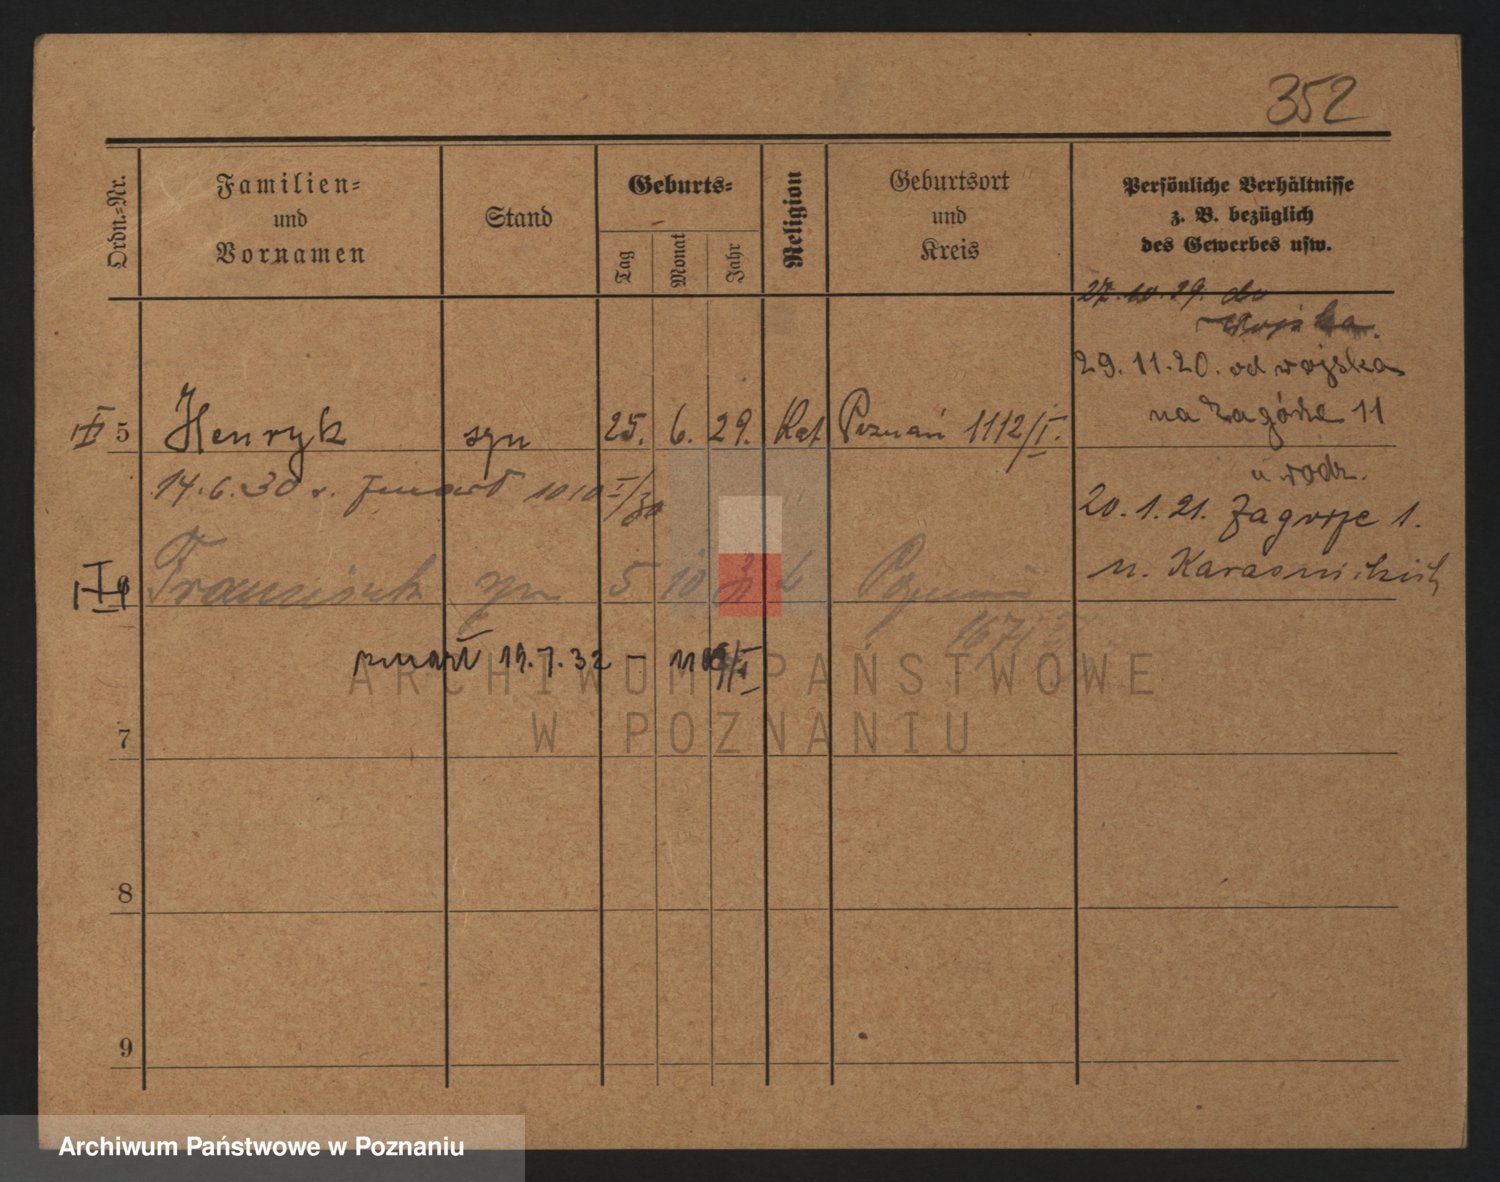 352
Ordn.-Nr.
Familien-
und
Vornamen
Stand
Geburts-
Tag
Monat
Jahr
Religion
Geburtsort
und
Kreis
Persönliche Verhältnisse
z. B. bezüglich
des Gewerbes usw.
27. 10. 19. do
wojska.
29. 11. 20. od wojska
na Zagórze 11
u rodz.
5 Henryk syn 25. 6. 29. Kat Poznań 1112/I.
14. 6. 30 r. zmarł 1010 I/30
20. 1. 21. Zagorze 1.
6 Franciszek syn 5 10 Poznań
zmarł 19. 7. 32 –
ARCHIWUM PAŃSTWOWE
W POZNANIU
7
8
9
Archiwum Państwowe w Poznaniu